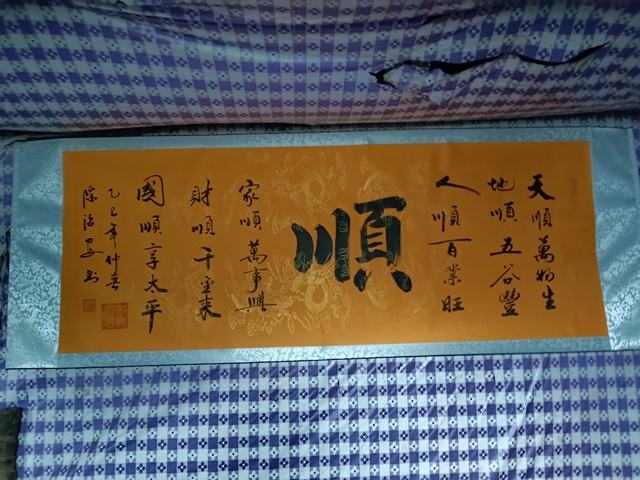 天順萬物生
地順五谷豐
人順百業旺
順
家順萬事興
財順千金來
國順享太平
乙巳年仲春